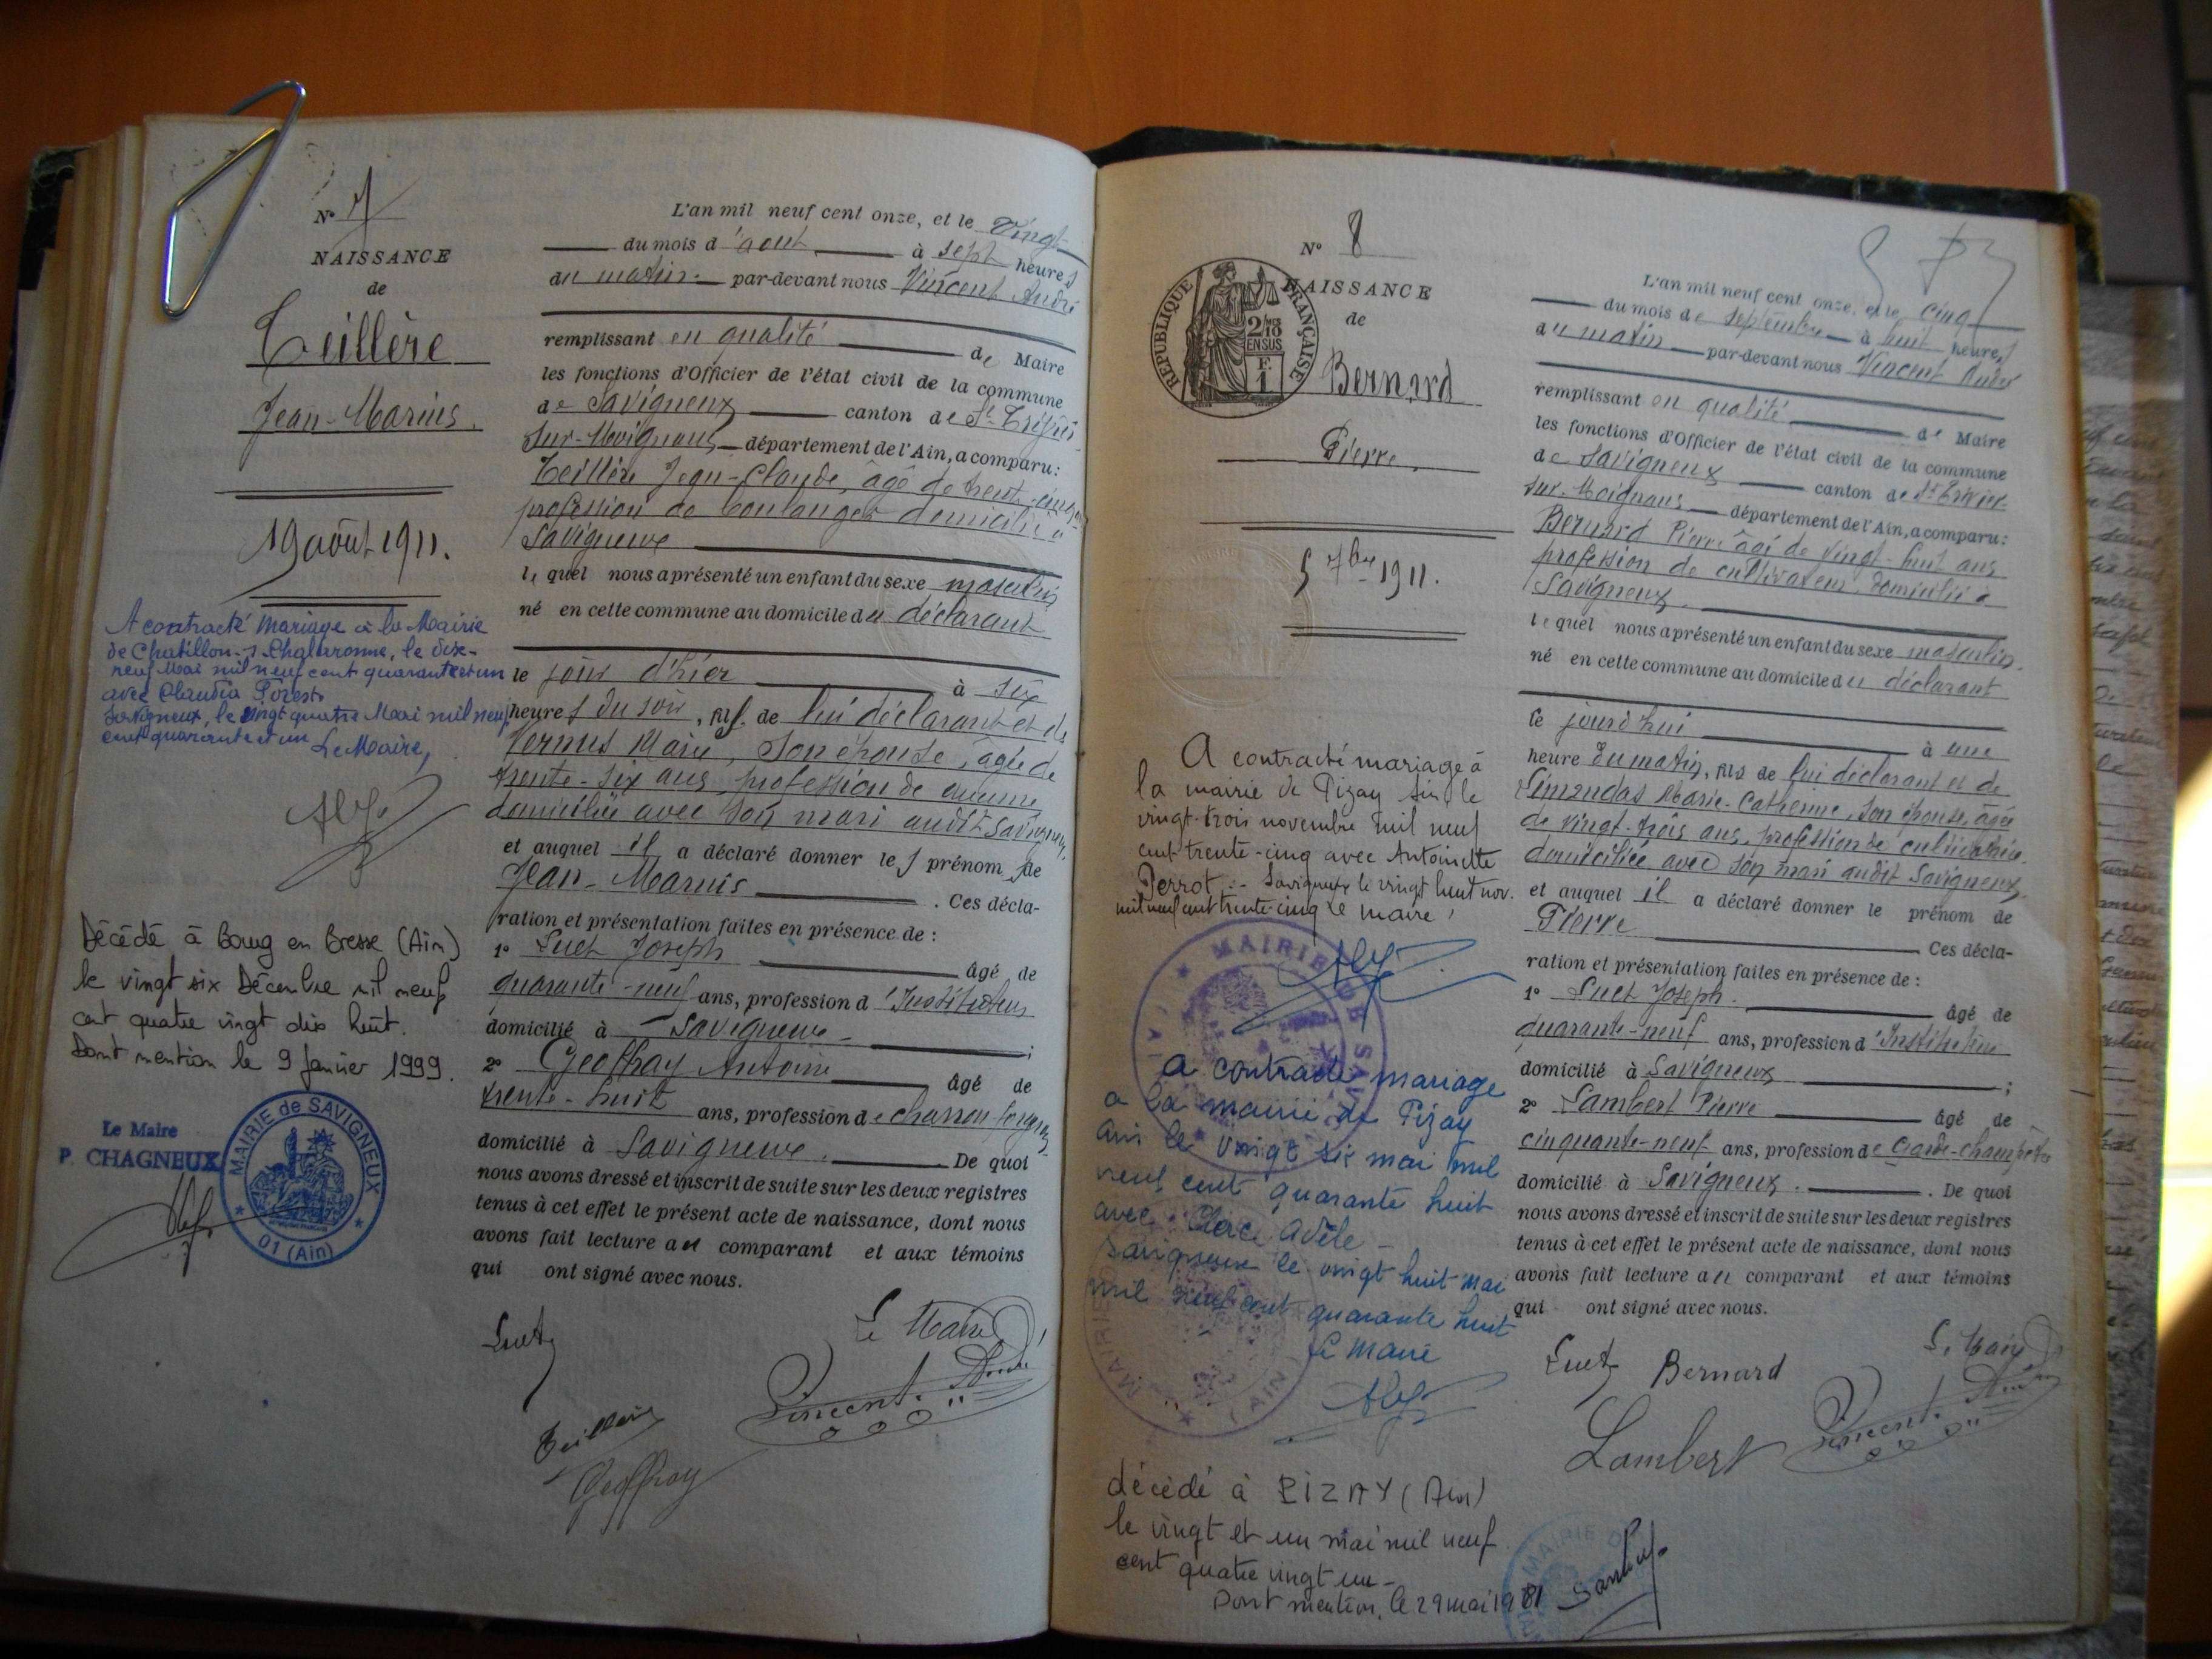 Nº 7
NAISSANCE
de
Teillère
Jean-Marius
19 août 1911.
A contracté mariage à la Mairie
de Chatillon-s-Chalaronne, le dix-
neuf Mai mil neuf cent quarante et un
avec Claudia Forest
Savigneux, le vingt quatre Mai mil neuf
cent quarante et un Le Maire,
Décédé à Bourg en Bresse (Ain)
le vingt six Décembre mil neuf
cent quatre vingt dix huit.
Dont mention le 9 Janvier 1999.
Le Maire
P. CHAGNEUX
MAIRIE de SAVIGNEUX
01 (Ain)
L'an mil neuf cent onze, et le vingt
du mois d'août à sept heures
du matin par-devant nous Vincent André
remplissant en qualité de Maire
les fonctions d'Officier de l'état civil de la commune
de Savigneux canton de St Trivier
sur-Moignans département de l'Ain, a comparu:
Teillère Jean-Claude, âgé de trente-cinq
profession de boulanger domicilié à
Savigneux
lequel nous a présenté un enfant du sexe masculin
né en cette commune au domicile du déclarant
le jour d'hier à six
heures du soir, fils de lui déclarant et de
Vernus Marie, son épouse, âgée de
trente-six ans, profession de aucune
domiciliée avec son mari audit Savigneux,
et auquel il a déclaré donner les prénom de
Jean-Marius . Ces décla-
ration et présentation faites en présence de :
1º Luet Joseph âgé de
quarante-neuf ans, profession d'Instituteur
domicilié à Savigneux ;
2º Geoffray Antoine âgé de
trente-huit ans, profession de charron forgeron
domicilié à Savigneux. De quoi
nous avons dressé et inscrit de suite sur les deux registres
tenus à cet effet le présent acte de naissance, dont nous
avons fait lecture au comparant et aux témoins
qui ont signé avec nous.
Luet
Le Maire
Vincent André
Teillère
Geoffray
Nº 8
NAISSANCE
de
RÉPUBLIQUE FRANÇAISE
2/10
EN SUS
F.
1
Bernard
Pierre,
5 7bre 1911.
A contracté mariage à
la mairie de Pizay Ain le
vingt-trois novembre mil neuf
cent trente-cinq avec Antoinette
Perrot.- Savigneux le vingt huit nov.
mil neuf cent trente-cinq Le maire,
MAIRIE DE SAVIGNEUX
a contracté mariage
a la mairie de Pizay
Ain le vingt six mai mil
neuf cent quarante huit
avec Adèle -
Savigneux le vingt huit mai
mil neuf cent quarante huit
Le Maire
MAIRIE
(AIN)
décédé à PIZAY (Ain)
le vingt et un mai mil neuf
cent quatre vingt un-
Dont mention, le 29 mai 1981
L'an mil neuf cent onze, et le cinq
du mois de septembre à huit heures
du matin par-devant nous Vincent André
remplissant en qualité de Maire
les fonctions d'Officier de l'état civil de la commune
de Savigneux canton de St Trivier-
sur-Moignans département de l'Ain, a comparu:
Bernard Pierre âgé de vingt-huit ans
profession de cultivateur domicilié à
Savigneux.
lequel nous a présenté un enfant du sexe masculin.
né en cette commune au domicile du déclarant
ce jourd'hui à une
heure du matin, fils de lui déclarant et de
Marie-Catherine, son épouse, âgée
de vingt-trois ans, profession de cultivatrice
domiciliée avec son mari audit Savigneux,
et auquel il a déclaré donner le prénom de
Pierre Ces décla-
ration et présentation faites en présence de :
1º Luet Joseph. âgé de
quarante-neuf ans, profession d'Instituteur
domicilié à Savigneux ;
2º Lambert Pierre âgé de
cinquante-neuf ans, profession de Garde-champêtre
domicilié à Savigneux. . De quoi
nous avons dressé et inscrit de suite sur les deux registres
tenus à cet effet le présent acte de naissance, dont nous
avons fait lecture au comparant et aux témoins
qui ont signé avec nous.
Luet Bernard
Le Maire
Lambert
Vincent André